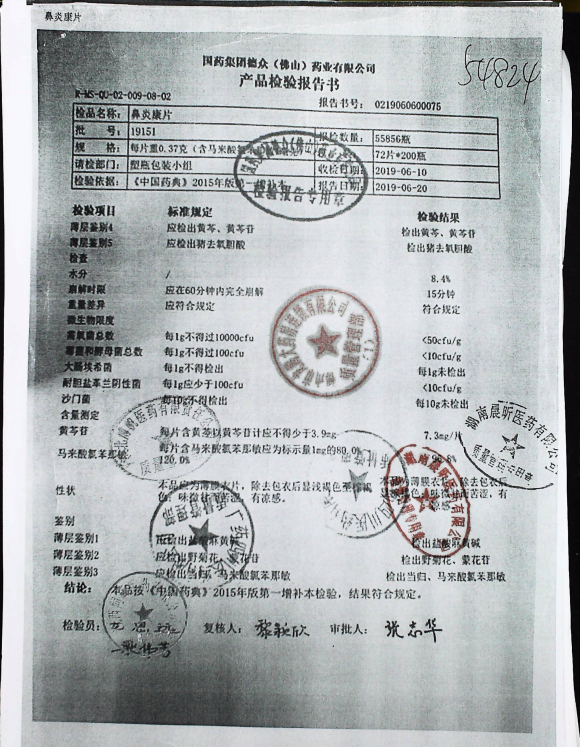 鼻炎康片
54824
国药集团德众（佛山）药业有限公司
产品检验报告书
R-MS-QU-02-009-08-02
报告书号： 0219060600075
检品名称： 鼻炎康片
批 号： 19151 报检数量： 55856瓶
规 格： 每片重0.37克（含马来酸氯 72片*200瓶
请检部门： 塑瓶包装小组 收检日期： 2019-06-10
检验依据： 《中国药典》2015年版第一 报告日期： 2019-06-20
检验报告专用章
检验项目 标准规定 检验结果
薄层鉴别4 应检出黄芩、黄芩苷 检出黄芩、黄芩苷
薄层鉴别5 应检出猪去氧胆酸 检出猪去氧胆酸
检查
水分 / 8.4%
崩解时限 应在60分钟内完全崩解 15分钟
重量差异 应符合规定 符合规定
微生物限度
需氧菌总数 每1g不得过10000cfu <50cfu/g
霉菌和酵母菌总数 每1g不得过100cfu <10cfu/g
大肠埃希菌 每1g不得检出 每1g未检出
耐胆盐革兰阴性菌 每1g应少于100cfu <10cfu/g
沙门菌 每10g不得检出 每10g未检出
含量测定
黄芩苷 每片含黄芩以黄芩苷计应不得少于3.9mg 7.3mg/片
马来酸氯苯那敏 每片含马来酸氯苯那敏应为标示量1mg的80.0%
120.0%
湖南晨昕医药有限公司
性状 本品应为薄膜衣片，除去包衣后显浅褐色至棕褐 本品为薄膜衣片，除去包衣后
色，味微甘而苦涩，有凉感。 味微甘而苦涩，有
凉感。
湖南晨昕医药有限公司
鉴别
薄层鉴别1 应检出盐酸麻黄碱 检出盐酸麻黄碱
薄层鉴别2 应检出野菊花、蒙花苷 检出野菊花、蒙花苷
薄层鉴别3 应检出当归、马来酸氯苯那敏 检出当归、马来酸氯苯那敏
结论： 本品按《中国药典》2015年版第一增补本检验，结果符合规定。
检验员： 复核人： 审批人： 张志华